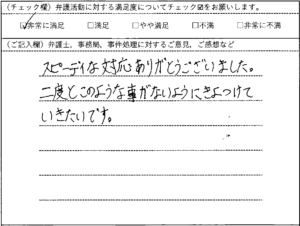 (チェック欄) 弁護活動に対する満足度についてチェック☑をお願いします。
☑非常に満足 □満足 □やや満足 □不満 □非常に不満
(ご記入欄) 弁護士、事務局、事件処理に対するご意見、ご感想など
スピーディな対応ありがとうございました。
二度とこのような事がないようにきよつけて
いきたいです。